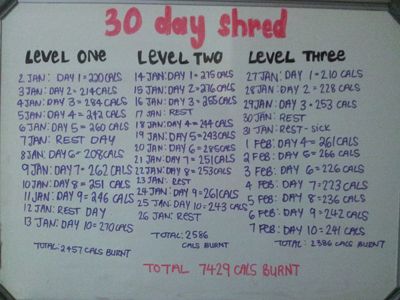 30 day shred
LEVEL ONE
2 JAN: DAY 1 = 220 CALS
3 JAN: DAY 2 = 214 CALS
4 JAN: DAY 3 = 284 CALS
5 JAN: DAY 4 = 242 CALS
6 JAN: DAY 5 = 260 CALS
7 JAN: REST DAY
8 JAN: DAY 6 = 208 CALS
9 JAN: DAY 7 = 262 CALS
10 JAN: DAY 8 = 251 CALS
11 JAN: DAY 9 = 246 CALS
12 JAN: REST DAY
13 JAN: DAY 10 = 270 CALS
TOTAL: 2457 CALS BURNT
LEVEL TWO
14 JAN: DAY 1 = 275 CALS
15 JAN: DAY 2 = 276 CALS
16 JAN: DAY 3 = 255 CALS
17 JAN: REST
18 JAN: DAY 4 = 244 CALS
19 JAN: DAY 5 = 243 CALS
20 JAN: DAY 6 = 285 CALS
21 JAN: DAY 7 = 251 CALS
22 JAN: DAY 8 = 253 CALS
23 JAN: REST
24 JAN: DAY 9 = 261 CALS
25 JAN: DAY 10 = 243 CALS
26 JAN: REST
TOTAL: 2586
CALS BURNT
LEVEL THREE
27 JAN: DAY 1 = 210 CALS
28 JAN: DAY 2 = 228 CALS
29 JAN: DAY 3 = 253 CALS
30 JAN: REST
31 JAN: REST - SICK
1 FEB: DAY 4 = 261 CALS
2 FEB: DAY 5 = 266 CALS
3 FEB: DAY 6 = 226 CALS
4 FEB: DAY 7 = 223 CALS
5 FEB: DAY 8 = 236 CALS
6 FEB: DAY 9 = 242 CALS
7 FEB: DAY 10 = 241 CALS
TOTAL: 2386 CALS BURNT
TOTAL 7429 CALS BURNT